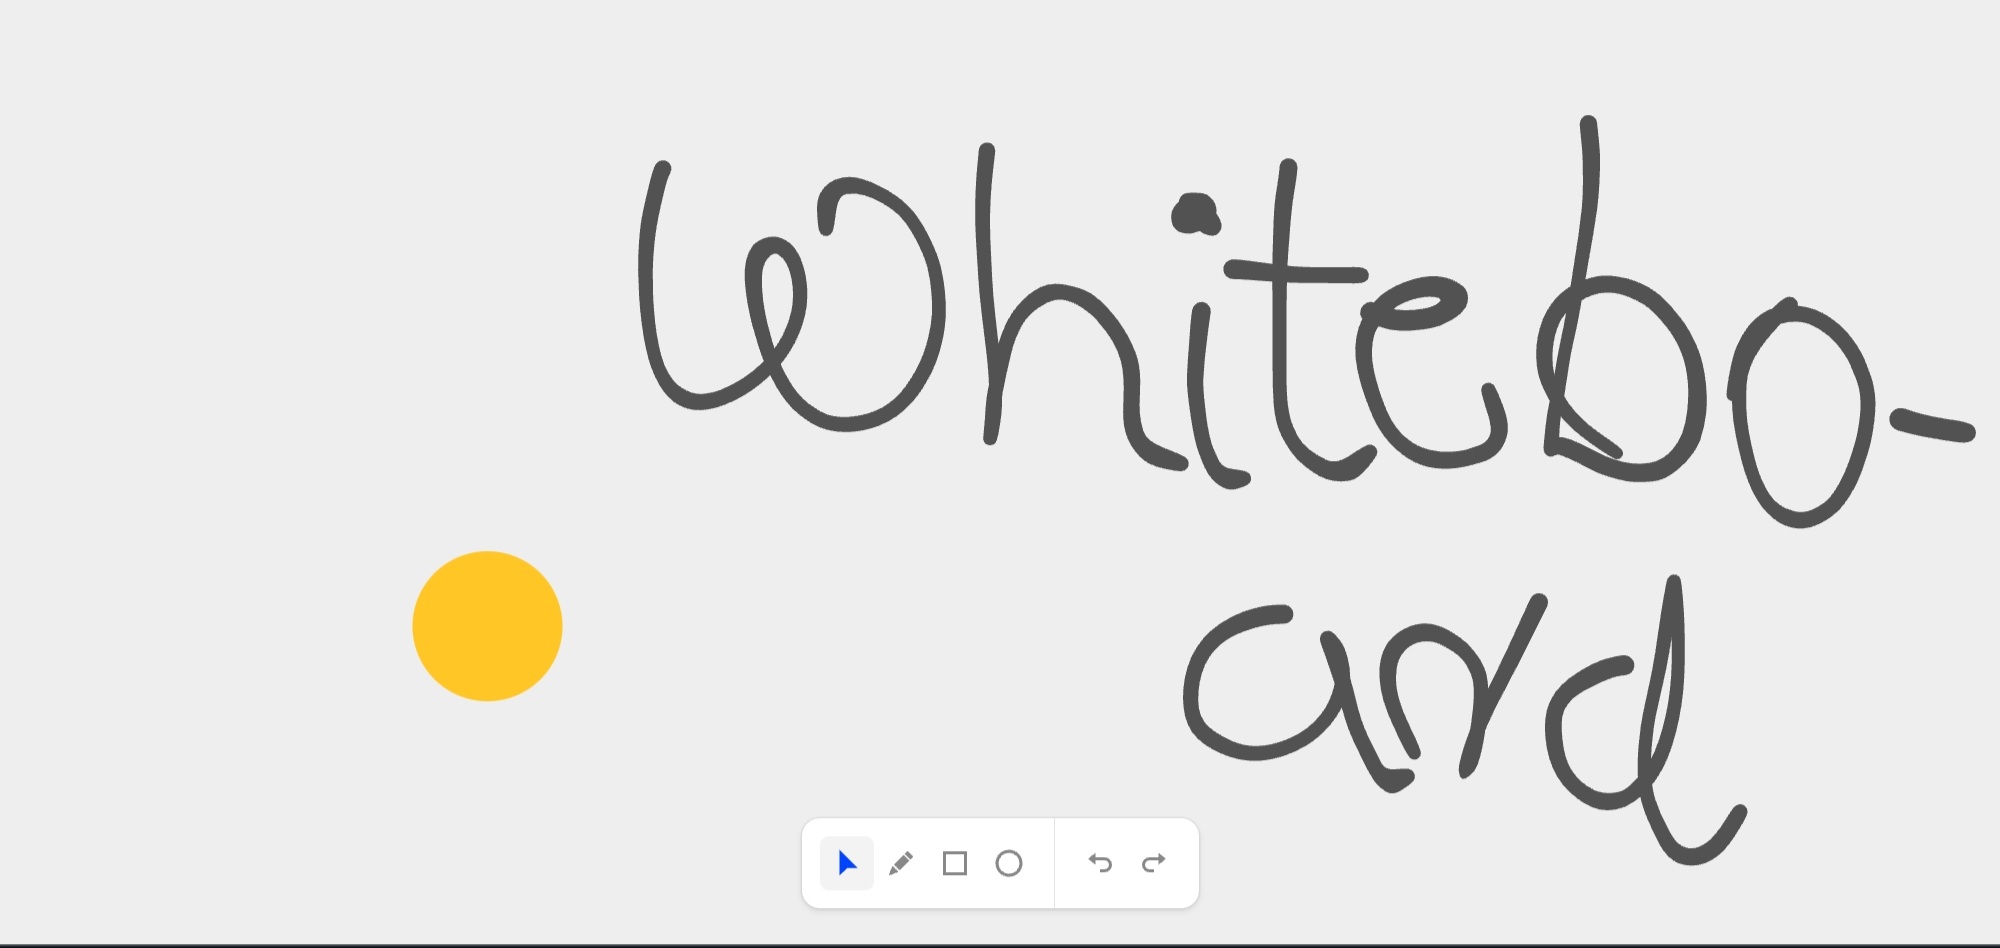 Whitebo-
ard